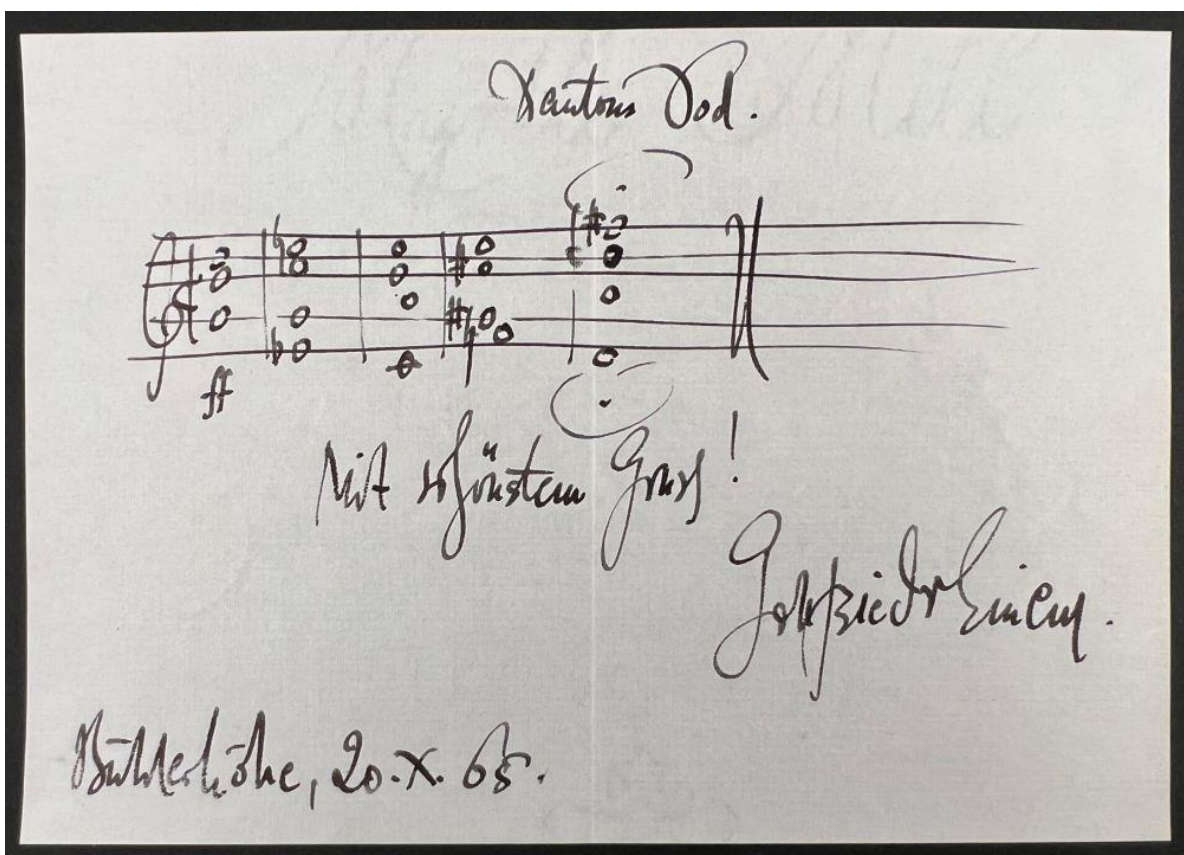 Dantons Tod.
ff
Mit schönstem Gruss!
Gottfried v Einem.
Bühlerhöhe, 20.X.65.